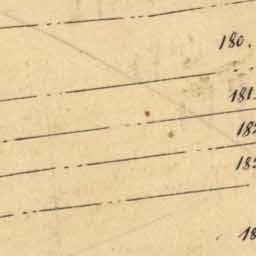 180.
181.
18
18
18